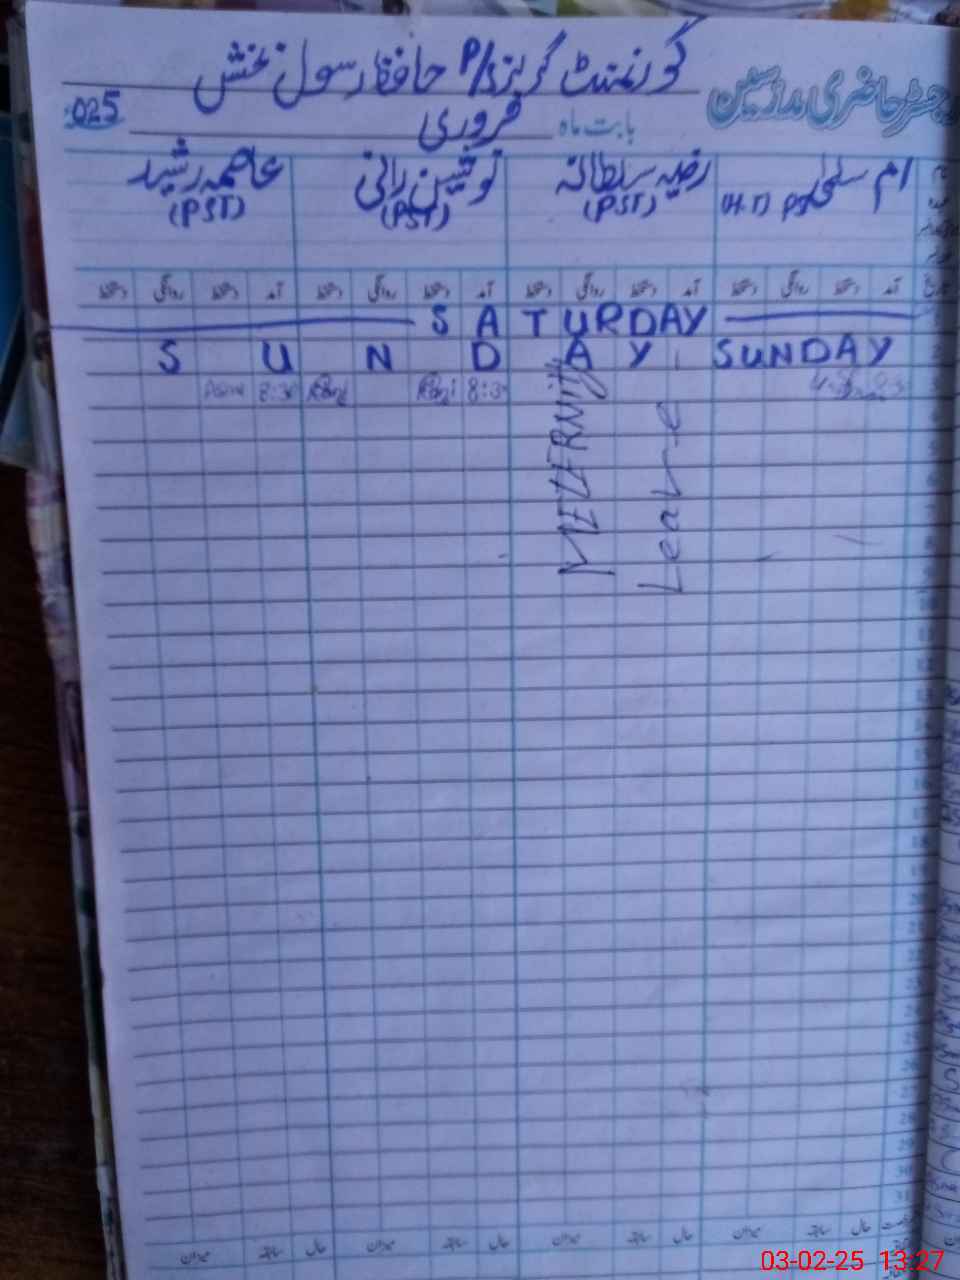 رجسٹر حاضری مدرسین
گورنمنٹ گرلز P/S حافظ رسول بخش
بابت ماہ فروری 025
ام سلمیٰ رضیہ سلطانہ نوشین رانی عاصمہ رشید
(H.T) PST (PST) (PST) (PST)
آمد دستخط روانگی دستخط آمد دستخط روانگی دستخط آمد دستخط روانگی دستخط آمد دستخط روانگی دستخط
SATURDAY
SUNDAY - SUNDAY
Asma 8:30 Rani Rani 8:30
METERNity
Leave
میزان سابقہ حال میزان سابقہ حال میزان سابقہ حال میزان سابقہ حال
03-02-25 13:27